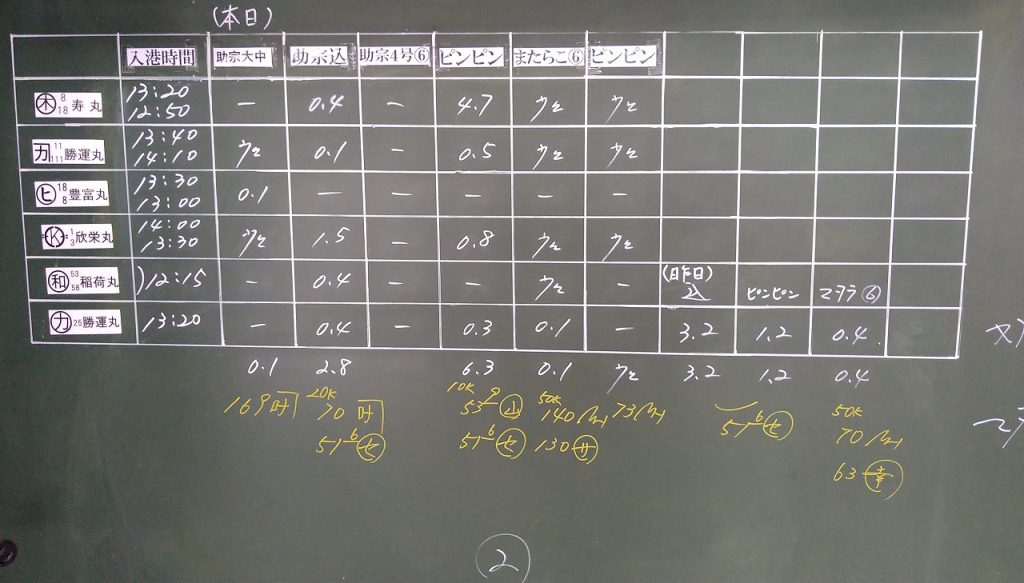 (本日)
入港時間 助宗大中 助宗込 助宗4号⑥ ピンピン またらこ⑥ ピンピン
木 8 18 寿丸 13:20 12:50 ー 0.4 ー 4.7 ウエ ウエ
カ 11 111 勝運丸 13:40 14:10 ウエ 0.1 ー 0.5 ウエ ウエ
ヒ 18 8 豊富丸 13:30 13:00 0.1 ー ー ー ー ー
K 1 3 欣栄丸 14:00 13:30 ウエ 1.5 ー 0.8 ウエ ウエ
(昨日)
和 53 58 稲荷丸 )12:15 ー 0.4 ー ー ウエ ー 込 ピンピン マタラ⑥
カ 25 勝運丸 13:20 ー 0.4 ー 0.3 0.1 ー 3.2 1.2 0.4
0.1 2.8 6.3 0.1 ウエ 3.2 1.2 0.4
20K 10K 50K 50K
169叶 70叶 53 9 山 140 73 51 6 セ 70
51 6 セ 51 6 セ 130 サ 63 幸
②